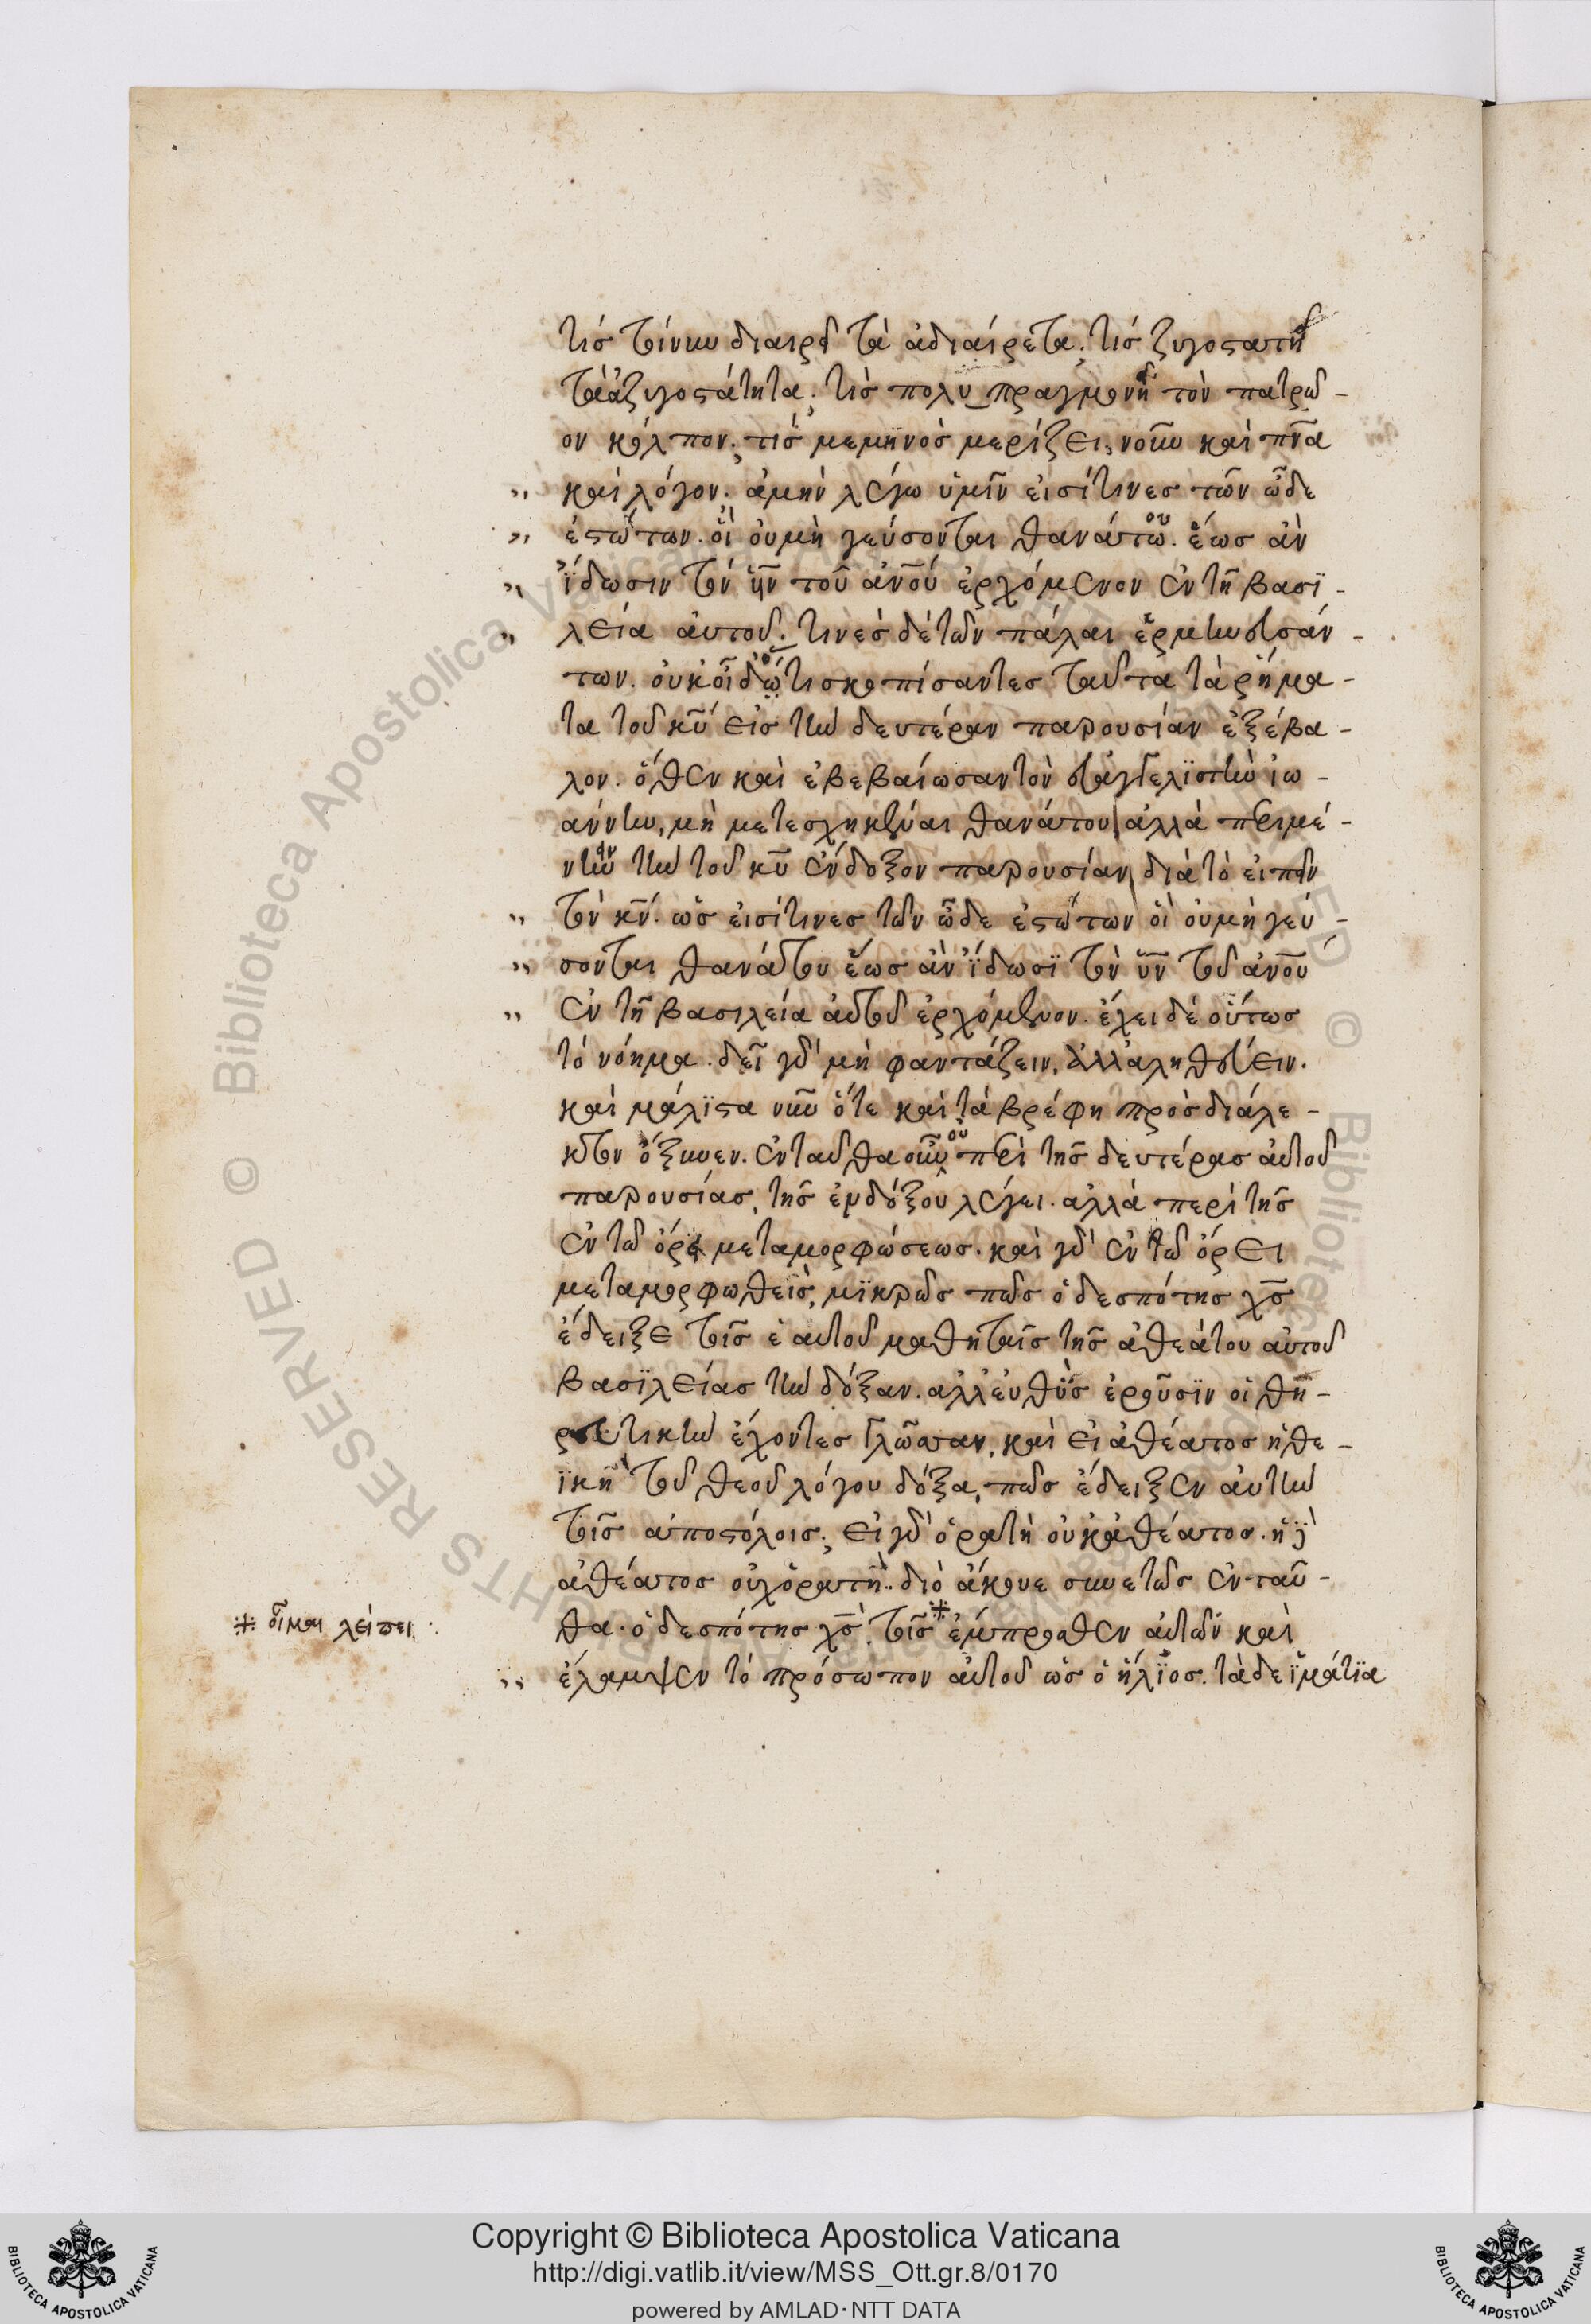 τίσ τοίνυν διαιρεῖ τὰ ἀδιαίρετα; τίσ ζυγοστατεῖ
τὰ ἀζυγοστάτητα; τίσ πολυπραγμονεῖ τὸν πατρῶ-
ον κόλπον; τίσ μεμηνὸσ μερίζει, νοῦν καὶ πν̅α
καὶ λόγον. ἀμὴν λέγω ὑμῖν εἰσί τινεσ τῶν ὧδε
ἑστώτων. οἳ οὐ μὴ γεύσονται θανάτου. ἕωσ ἂν
ἴδωσιν τὸν υν̅ τοῦ αν̅ου ἐρχόμενον ἐν τῆ βασϊ-
λεία αὐτοῦ. τινὲσ δὲ τῶν πάλαι ἑρμηνευσάν-
των. οὐκ οἶδ' ὅτι σκοπίσαντεσ ταῦτα τὰ ῥήμα-
τα τοῦ κυ̅ εἰσ τὴν δευτέραν παρουσίαν ἐξέβα-
λον. ὅθεν καὶ ἐβεβαίωσαν τὸν εὐαγγελϊστὴν ἰω-
άννην, μὴ μετεσχηκέναι θανάτου ἀλλὰ περιμέ-
νειν τὴν τοῦ κυ̅ ἔνδοξον παρουσίαν διὰ τὸ εἰπεῖν
τὸν κν̅. ὡσ εἰσί τινεσ τῶν ὧδε ἑστώτων οἳ οὐ μὴ γεύ-
σονται θανάτου ἕωσ ἂν ἴδωσϊ τὸν υν̅ τοῦ αν̅ου
ἐν τῆ βασιλεία αὐτοῦ ἐρχόμενον. ἔχει δὲ οὕτωσ
τὸ νόημα. δεῖ γὰρ μὴ φαντάζειν, ἀλλ' ἀληθεύειν.
καὶ μάλϊστα νῦν ὅτε καὶ τὰ βρέφη πρὸσ διάλε-
κτον ὄξυνεν. ἐνταῦθα οὖν οὐ περὶ τῆσ δευτέρασ αὐτοῦ
παρουσίασ, τῆσ ἐνδόξου λέγει. ἀλλὰ περὶ τῆσ
ἐν τῶ ὄρει μεταμορφώσεωσ. καὶ γὰρ ἐν τῶ ὄρει
μεταμορφωθεὶσ, μϊκρῶσ πωσ ὁ δεσπότησ χσ̅
ἔδειξε τοῖσ ἑαυτοῦ μαθηταῖσ τῆσ ἀθεάτου αὐτοῦ
βασϊλείασ τὴν δόξαν. ἀλλ' εὐθὺσ ἐροῦσϊν οἱ θη-
ρευτικὴν ἔχοντεσ γλῶτταν, καὶ εἰ ἀθέατοσ ἡ θε-
ϊκὴ τοῦ θεοῦ λόγου δόξα, πῶσ ἔδειξεν αὐτὴν
τοῖσ ἀποστόλοισ; εἰ γὰρ ὁρατὴ οὐκ ἀθέατοσ. εἰ γὰρ
ἀθέατοσ οὐχ ὁρατή. διὸ ἄκουε συνετῶσ ἐνταῦ-
θα. ὁ δεσπότησ χσ̅. τοῖσ * ἔμπροσθεν αὐτῶν καὶ
* οἶμαι λείπει.
ἔλαμψεν τὸ πρόσωπον αὐτοῦ ὡσ ὁ ἥλϊοσ. τὰ δε ϊμάτϊα
Copyright © Biblioteca Apostolica Vaticana
http://digi.vatlib.it/view/MSS_Ott.gr.8/0170
powered by AMLAD·NTT DATA
BIBLIOTECA APOSTOLICA VATICANA
BIBLIOTECA APOSTOLICA VATICANA